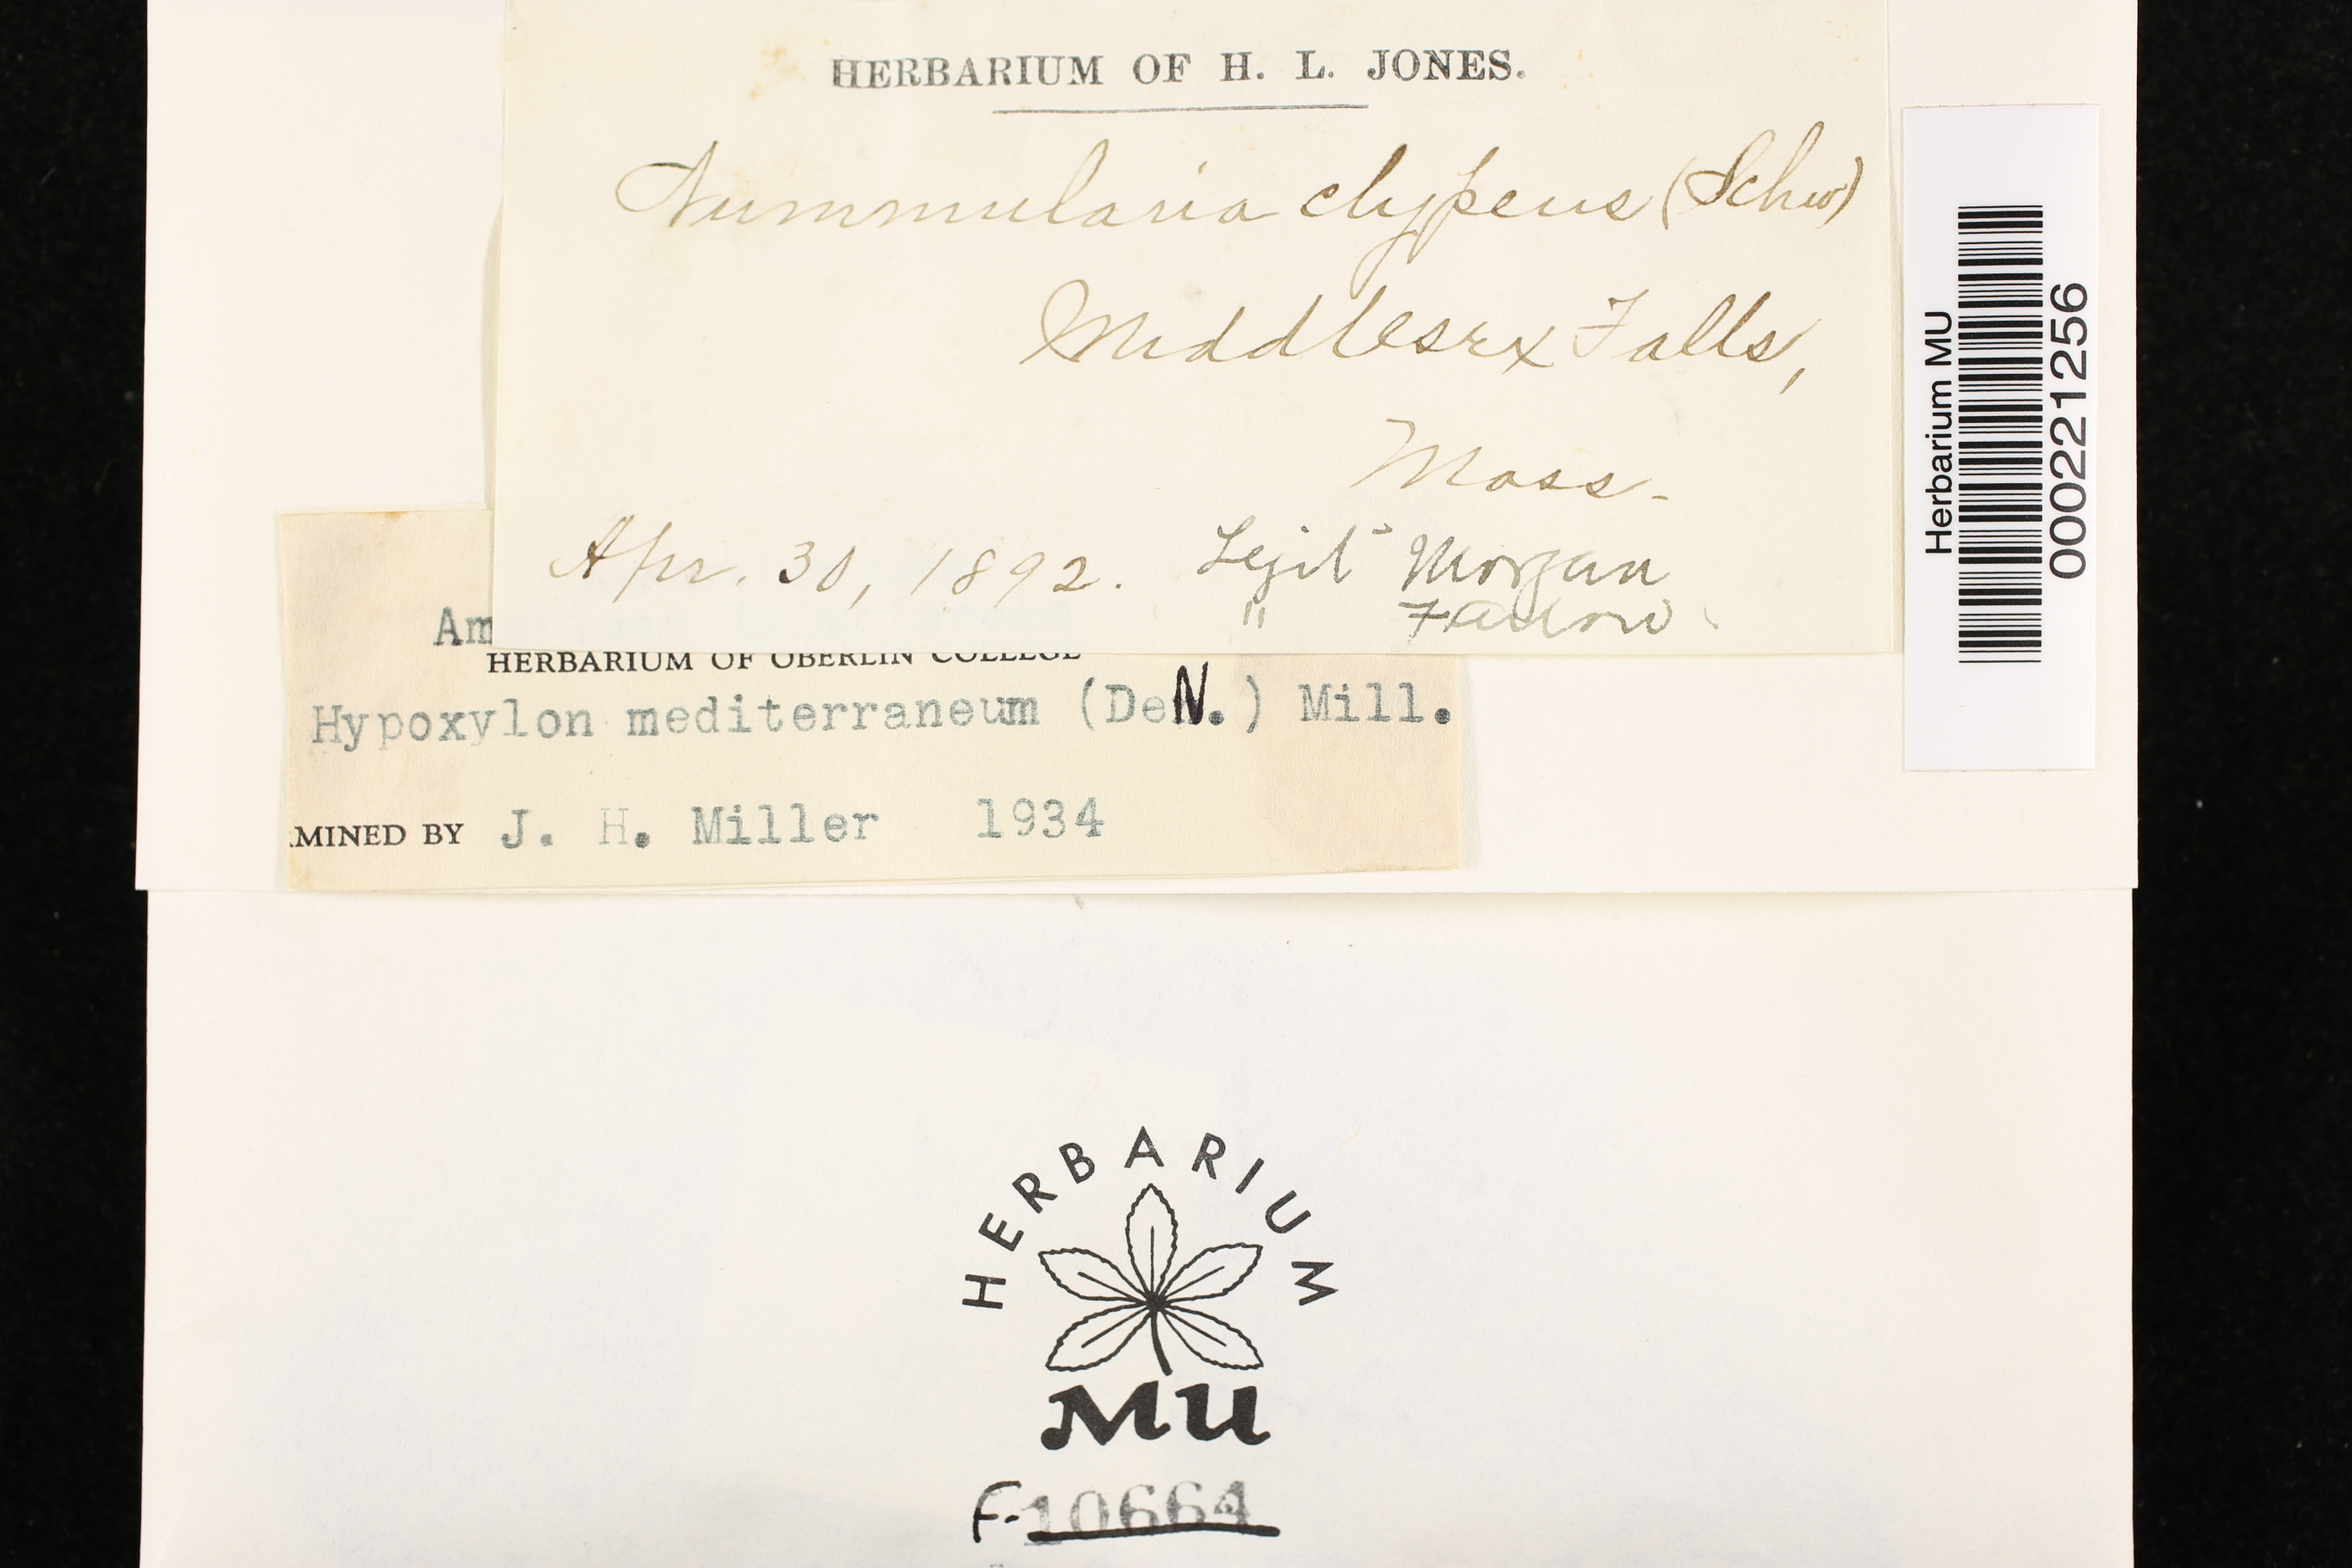 HERBARIUM OF H. L. JONES.
Nummularia clypeus (Schw)
Middlesex Falls,
Mass.
Apr. 30, 1892. Legit Morgan
" Farlow
Am
HERBARIUM OF OBERLIN COLLEGE
Hypoxylon mediterraneum (DeN.) Mill.
MINED BY J. H. Miller 1934
Herbarium MU
000221256
HERBARIUM
MU
F-10664